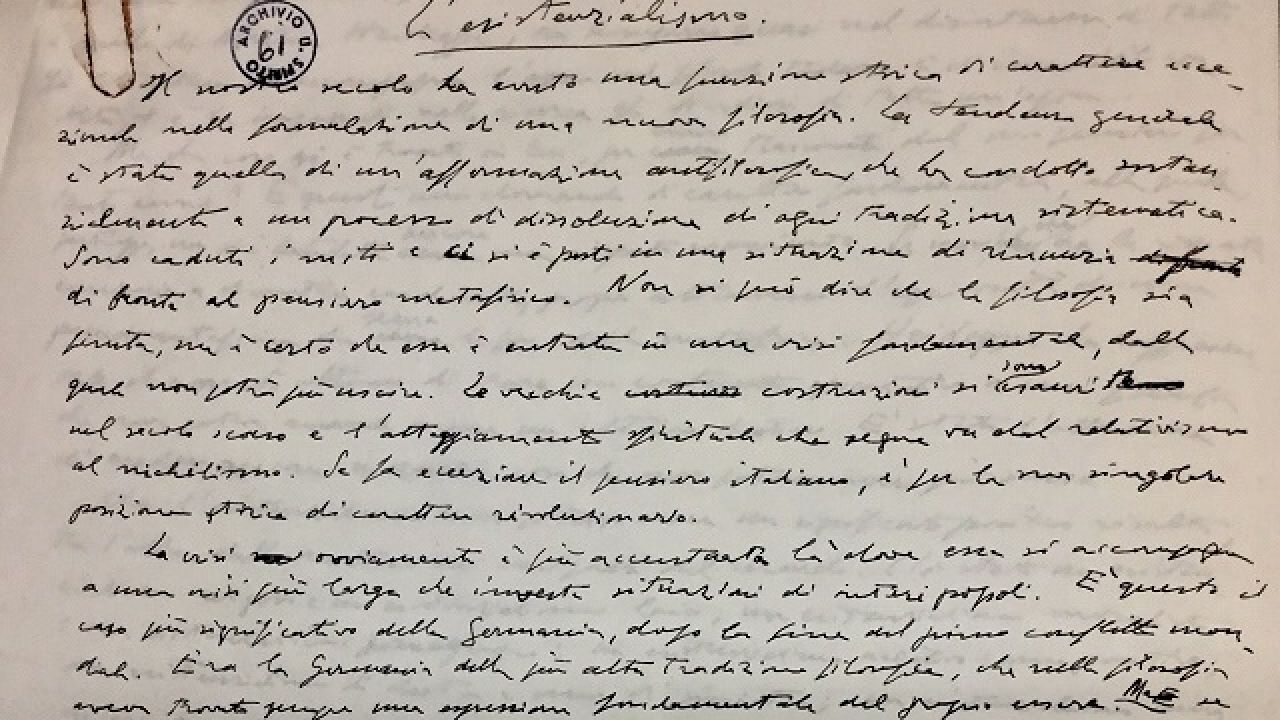 L'esistenzialismo.
ARCHIVIO U. SPIRITO
61
Il nostro secolo ha avuto una funzione storica di carattere ecce-
zionale nella formulazione di una nuova filosofia. La tendenza generale
è stata quella di un'affermazione antifilosofica, che ha condotto sostan-
zialmente a un processo di dissoluzione di ogni tradizione sistematica.
Sono caduti i miti e ci si è posti in una situazione di rinunzia di fronte
di fronte al pensiero metafisico. Non si può dire che la filosofia sia
finita, ma è certo che essa è entrata in una crisi fondamentale, dalla
quale non potrà più uscire. Le vecchie costruzioni si sono
nel secolo scorso e l'atteggiamento spirituale che segue va dal relativismo
al nichilismo. Se fa eccezione il pensiero italiano, è per la sua singolare
posizione storica di carattere rivoluzionario.
La crisi ovviamente è più accentuata là dove essa si accompagna
a una crisi più larga che investe situazioni di interi popoli. È questo il
caso più significativo della Germania, dopo la fine del primo conflitto mon-
diale. Era la Germania della più alta tradizione filosofica, che nella filosofia
aveva trovato sempre una espressione fondamentale del proprio essere. Ma